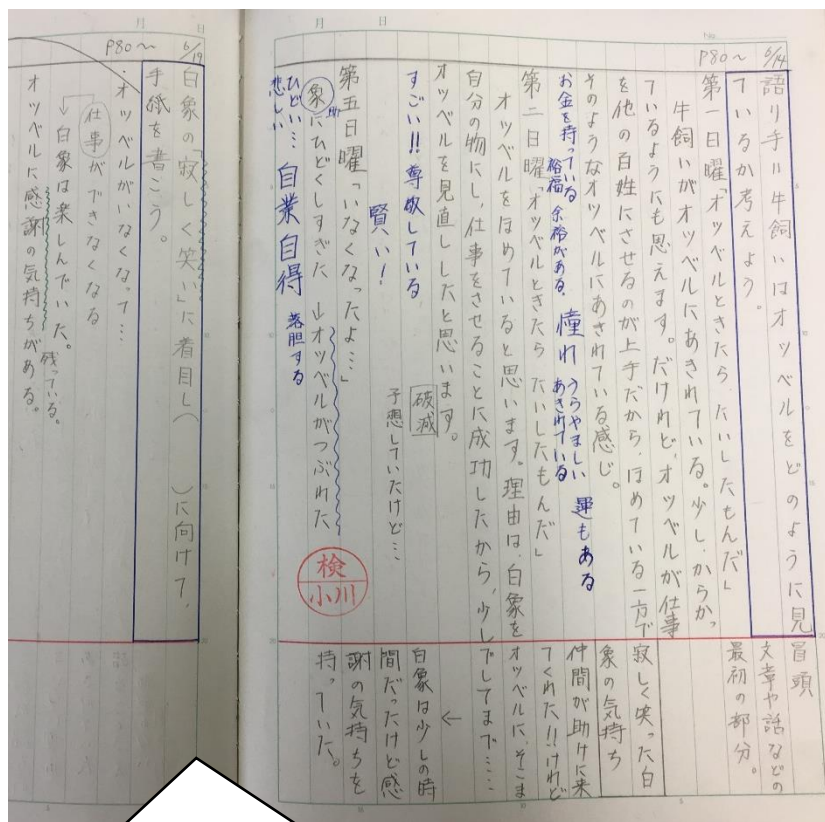 月 日
No.
6/14
P80～
語り手＝牛飼いはオツベルをどのように見
ているか考えよう。
第一日曜「オツベルときたら、たいしたもんだ」
牛飼いがオツベルにあきれている。少し、からかっ
ているようにも思えます。だけれど、オツベルが仕事
を他の百姓にさせるのが上手だから、ほめている一方で
そのようなオツベルにあきれている感じ。
お金を持っている
裕福 余裕がある、憧れ うらやましい
あきれている
運もある
第二日曜「オツベルときたら たいしたもんだ」
オツベルをほめていると思います。理由は、白象を
自分の物にし、仕事をさせることに成功したから、少し
オツベルを見直ししたと思います。
すごい!!尊敬している
破滅
賢い！
予想していたけど…
第五日曜「いなくなったよ…」
象にひどくしすぎた →オツベルがつぶれた
ひどい… 自業自得 落胆する
悲しい
検
小川
冒頭
文章や話などの
最初の部分。
寂しく笑った白
象の気持ち
仲間が助けに来
てくれた!!けれど
オツベルに、そこま
でしてまで……
←
白象は少しの時
間だったけど感
謝の気持ちを
持っていた。
月 日
6/19
P80～
白象の「寂しく笑い」に着目し（ ）に向けて、
手紙を書こう。
・オツベルがいなくなって…
仕事ができなくなる
→白象は楽しんでいた。
残っている。
オツベルに感謝の気持ちがある。